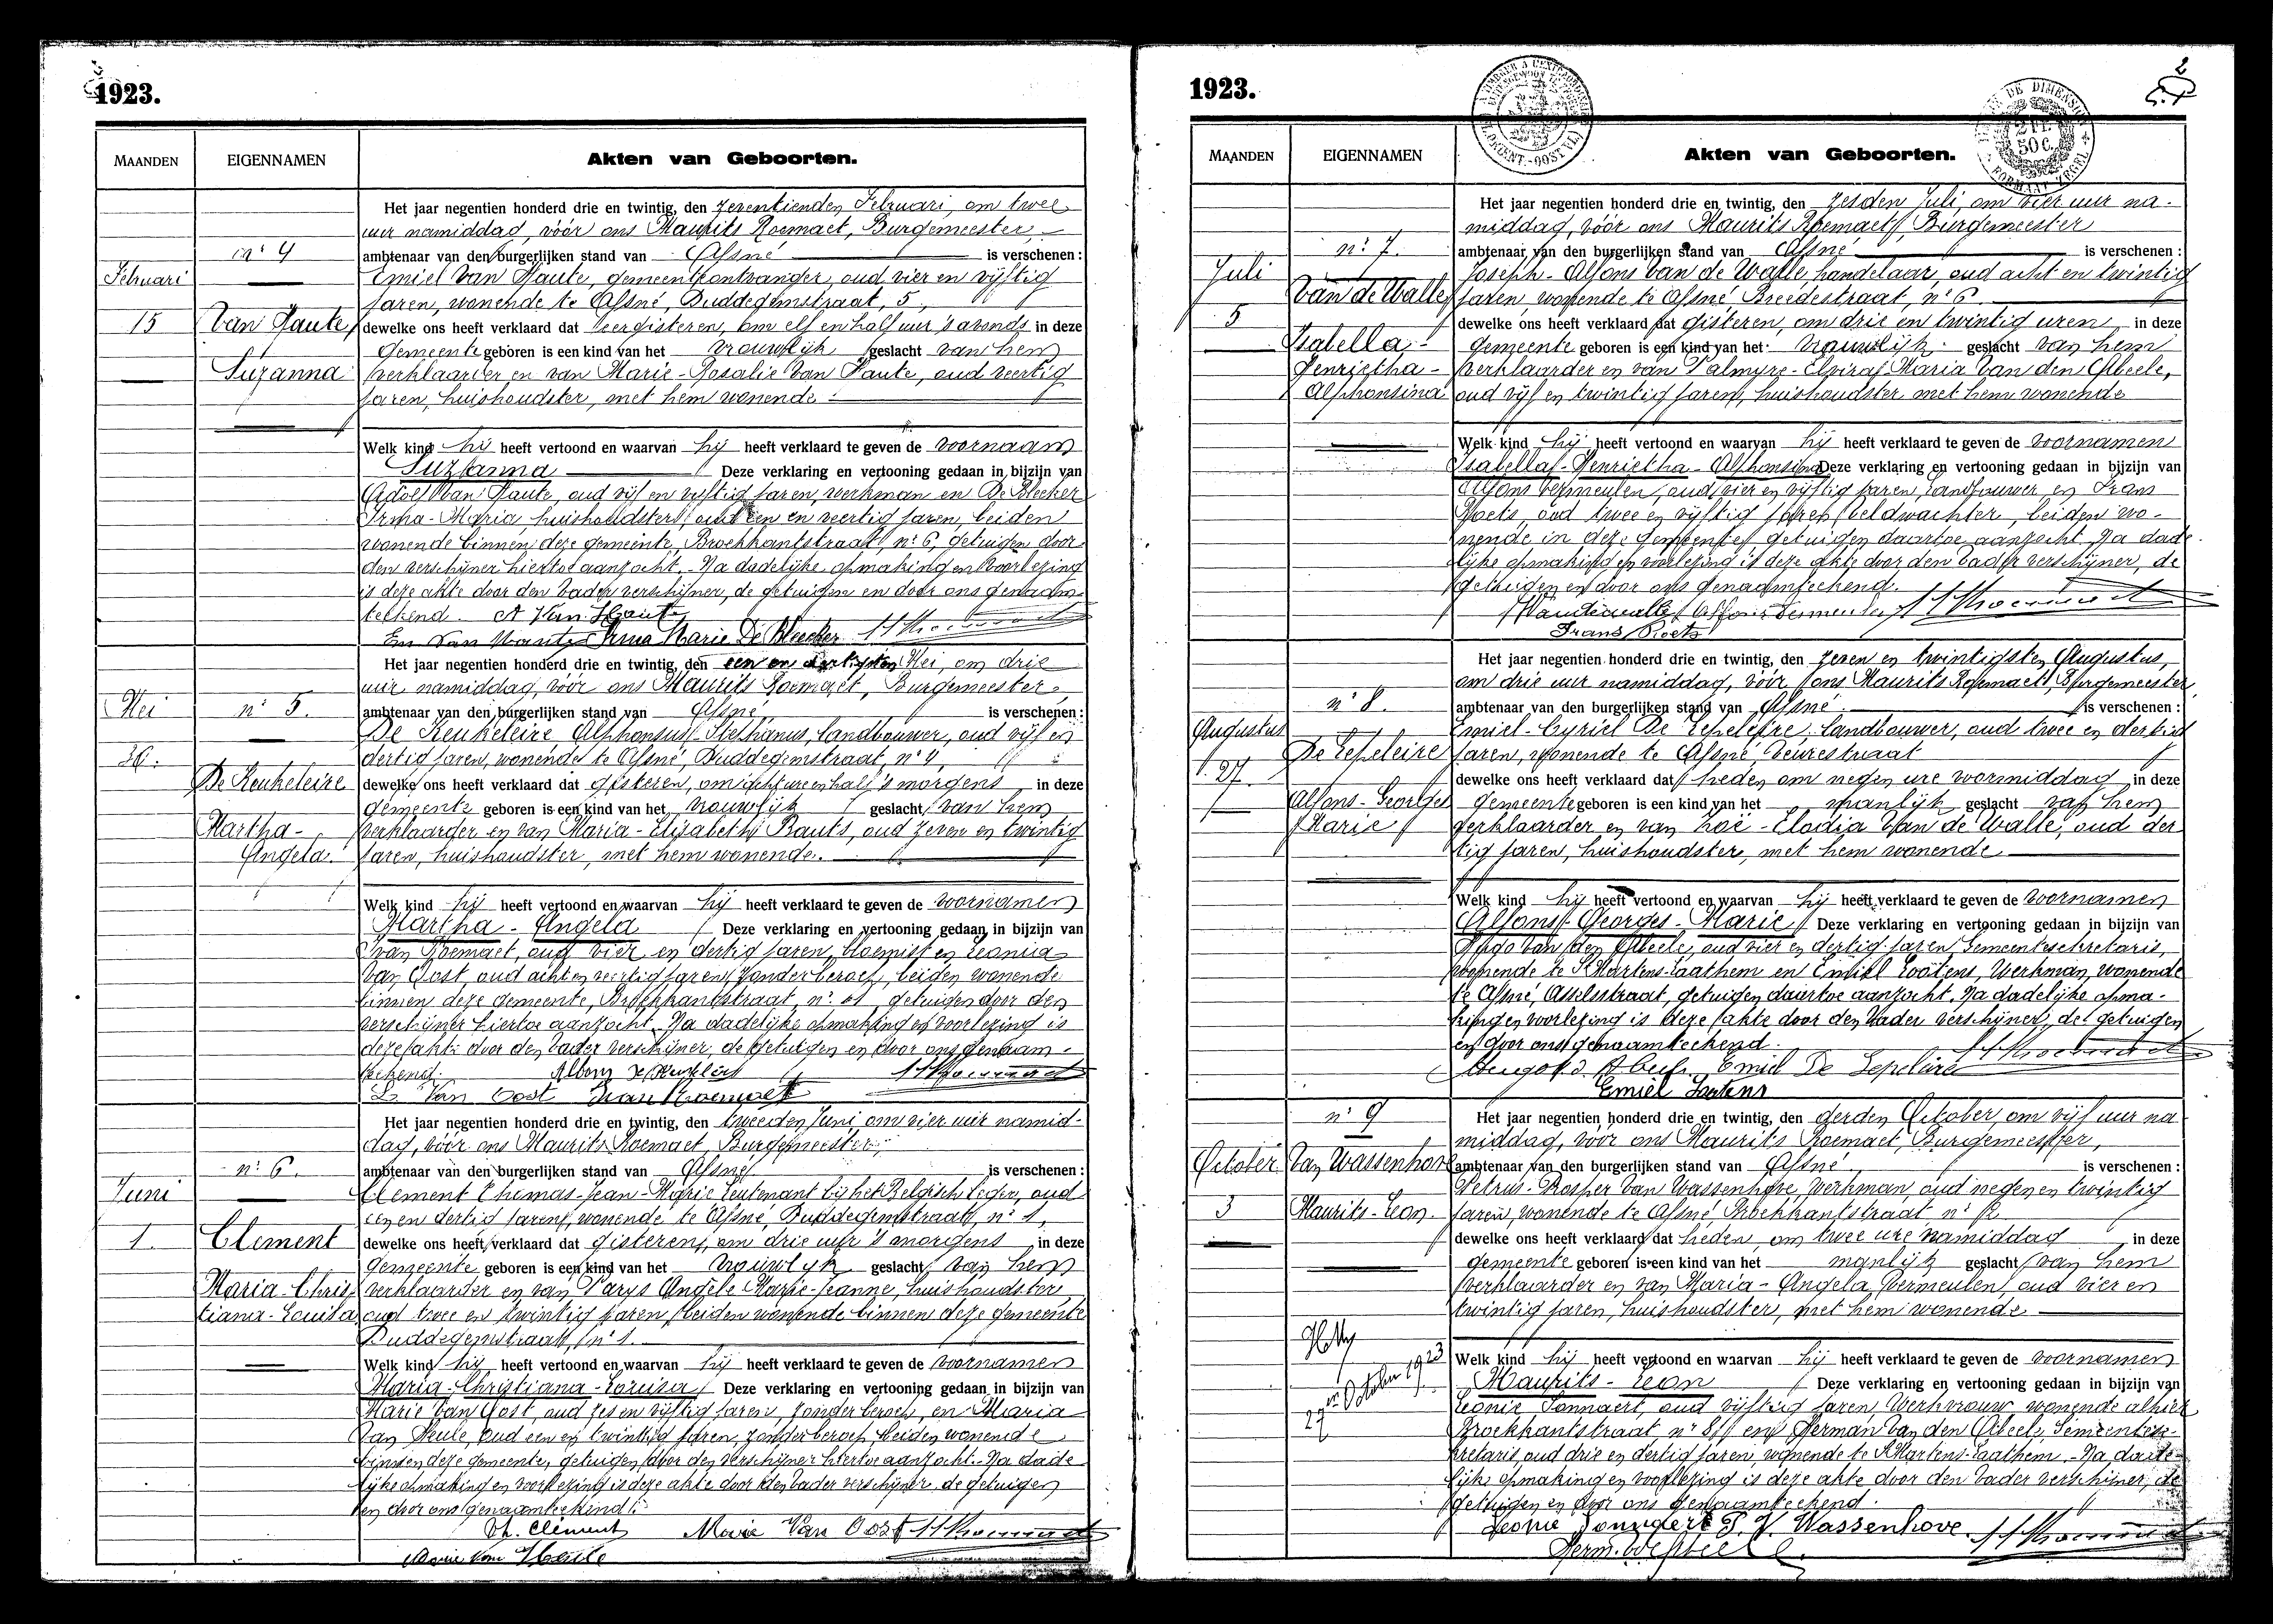 1923.
MAANDEN EIGENNAMEN Akten van Geboorten.
Het jaar negentien honderd drie en twintig, den zeventienden Februari, om twee
uur namiddag, vóór ons Maurits Roemaet, Burgemeester,
nr 4 ambtenaar van den burgerlijken stand van Afsné is verschenen :
Februari Emiel Van Haute, gemeenteontvanger, oud vier en vijftig
jaren, wonende te Afsné, Duddegemstraat, 5,
15 Van Haute dewelke ons heeft verklaard dat eergisteren, om elf en half uur 's avonds in deze
gemeente geboren is een kind van het vrouwlijk geslacht van hem
Suzanna verklaarder en van Marie-Rosalie Van Haute, oud veertig
jaren, huishoudster, met hem wonende.
Welk kind hij heeft vertoond en waarvan hij heeft verklaard te geven de voornaam
Suzanna Deze verklaring en vertooning gedaan in bijzijn van
Adolf Van Haute, oud vijf en vijftig jaren, werkman en De Bleeker
Irma-Maria, huishoudster, oud een en veertig jaren, beiden
wonende binnen deze gemeente, Broekkantstraat, nr 6, getuigen door
den verschijner hiertoe aanzocht. Na dadelijke opmaking en voorlezing
is deze akte door den vader verschijner, de getuigen en door ons genaam-
teekend. A Van Haute
Em Van Haute Irma Marie De Bleecker
Het jaar negentien honderd drie en twintig, den een en dertigsten Mei, om drie
uur namiddag, vóór ons Maurits Roemaet, Burgemeester,
Mei nr 5. ambtenaar van den burgerlijken stand van Afsné is verschenen :
De Keukeleire Alphonsus Stephanus, landbouwer, oud vijf en
30. dertig jaren, wonende te Afsné, Duddegemstraat, nr 4,
De Keukeleire dewelke ons heeft verklaard dat gisteren, om acht ure en half 's morgens in deze
gemeente geboren is een kind van het vrouwlijk geslacht van hem
Martha- verklaarder en van Maria-Elizabeth Bauts, oud zeven en twintig
Angela. jaren, huishoudster, met hem wonende.
Welk kind hij heeft vertoond en waarvan hij heeft verklaard te geven de voornamen
Martha-Angela Deze verklaring en vertooning gedaan in bijzijn van
Roemaet, oud vier en dertig jaren, bloemist en Leonia
Van Oost, oud acht en veertig jaren, zonder beroep, beiden wonende
binnen deze gemeente, Broekkantstraat, nr getuigen door den
verschijner hiertoe aanzocht. Na dadelijke opmaking en voorlezing is
deze akte door den vader verschijner, de getuigen en door ons genaam-
teekend.
L. Van Oost Roemaet
Het jaar negentien honderd drie en twintig, den tweeden Juni om vier uur namid-
dag, vóór ons Maurits Roemaet, Burgemeester,
nr 6. ambtenaar van den burgerlijken stand van Afsné is verschenen :
Juni Clement Thomas-Jean-Marie, Luitenant bij het Belgisch Leger, oud
een en dertig jaren, wonende te Afsné, Duddegemstraat, nr 1,
1. Clement dewelke ons heeft verklaard dat gisteren, om drie uur 's morgens in deze
gemeente geboren is een kind van het vrouwlijk geslacht van hem
Maria-Chris verklaarder en van Parys Angèle Marie-Jeanne, huishoudster,
tiana-Louisa oud twee en twintig jaren, beiden wonende binnen deze gemeente
Duddegemstraat, nr 1.
Welk kind hij heeft vertoond en waarvan hij heeft verklaard te geven de voornamen
Maria-Christiana-Louisa Deze verklaring en vertooning gedaan in bijzijn van
Marie Van Oost, oud zes en vijftig jaren, zonder beroep, en Maria
Van Heule, oud een en twintig jaren, zonder beroep, beiden wonende
binnen deze gemeente, getuigen door den verschijner hiertoe aanzocht. Na dade
lijke opmaking en voorlezing is deze akte door den vader verschijner, de getuigen
en door ons genaamteekend.
Th. Clément Marie Van Oost
Van Heule
1923.
2
2 FR. 50 C.
MAANDEN EIGENNAMEN Akten van Geboorten.
Het jaar negentien honderd drie en twintig, den zesden Juli, om vier uur na-
middag, vóór ons Maurits Roemaet, Burgemeester
nr 7. ambtenaar van den burgerlijken stand van Afsné is verschenen :
Juli Joseph-Alfons Van de Walle, handelaar, oud acht en twintig
Van de Walle jaren, wonende te Afsné, Breedestraat, nr 6.
5 dewelke ons heeft verklaard dat gisteren, om drie en twintig uren in deze
Isabella- gemeente geboren is een kind van het vrouwlijk geslacht van hem
Henrietha- verklaarder en van Palmyre-Elvira-Maria Van den Abeele,
Alphonsina oud vijf en twintig jaren, huishoudster met hem wonende
Welk kind hij heeft vertoond en waarvan hij heeft verklaard te geven de voornamen
Isabella-Henrietha-Alphonsina Deze verklaring en vertooning gedaan in bijzijn van
Alfons Vermeulen, oud vier en vijftig jaren, landbouwer, en Frans
Roets, oud twee en vijftig jaren, veldwachter, beiden wo-
nende in deze gemeente, getuigen daartoe aanzocht. Na dade-
lijke opmaking en voorlezing is deze akte door den vader verschijner, de
getuigen en door ons genaamteekend.
Vandewalle Alfons Vermeulen
Frans Roets
Het jaar negentien honderd drie en twintig, den zeven en twintigsten Augustus,
om drie uur namiddag, vóór ons Maurits Roemaet, Burgemeester,
nr 8. ambtenaar van den burgerlijken stand van Afsné. is verschenen :
Augustus Emiel-Cyriel De Lepeleire, landbouwer, oud twee en dertig
De Lepeleire jaren, wonende te Afsné, Veurestraat
27. dewelke ons heeft verklaard dat heden om negen ure voormiddag in deze
Alfons-Georges gemeente geboren is een kind van het manlijk geslacht van hem
Marie verklaarder en van Zoë-Elodia Van de Walle, oud der
tig jaren, huishoudster, met hem wonende
Welk kind hij heeft vertoond en waarvan hij heeft verklaard te geven de voornamen
Alfons-Georges-Marie Deze verklaring en vertooning gedaan in bijzijn van
Hugo Van den Abeele, oud vier en dertig jaren, Gemeentesekretaris,
wonende te St Martens-Laathem en Emiel Lootens, Werkman, wonende
te Afsné, Asselsstraat, getuigen daartoe aanzocht. Na dadelijke opma-
king en voorlezing is deze akte door den vader verschijner, de getuigen
en door ons genaamteekend.
Hugo v. d. Abeele Emiel De Lepeleire
Emiel Lootens
nr 9 Het jaar negentien honderd drie en twintig, den derden October, om vijf uur na
middag, vóór ons Maurits Roemaet, Burgemeester,
October Van Wassenhove ambtenaar van den burgerlijken stand van Afsné is verschenen :
Petrus-Prosper Van Wassenhove, werkman, oud negen en twintig
3 Maurits-Leon. jaren, wonende te Afsné, Broekkantstraat, nr 12
dewelke ons heeft verklaard dat heden, om twee ure namiddag in deze
gemeente geboren is een kind van het manlijk geslacht van hem
verklaarder en van Maria-Angela Vermeulen, oud vier en
twintig jaren, huishoudster, met hem wonende
27 October 1923
Welk kind hij heeft vertoond en waarvan hij heeft verklaard te geven de voornamen
Maurits-Leon Deze verklaring en vertooning gedaan in bijzijn van
Leonie Sonnaert, oud vijftig jaren, Werkvrouw, wonende alhier
Broekkantstraat, nr 8, en Herman Van den Abeele, Gemeentese-
kretaris, oud drie en dertig jaren, wonende te St Martens-Laathem. Na dade-
lijke opmaking en voorlezing is deze akte door den vader verschijner, de
getuigen en door ons genaamteekend.
Leonie Sonnaert P. V. Wassenhove.